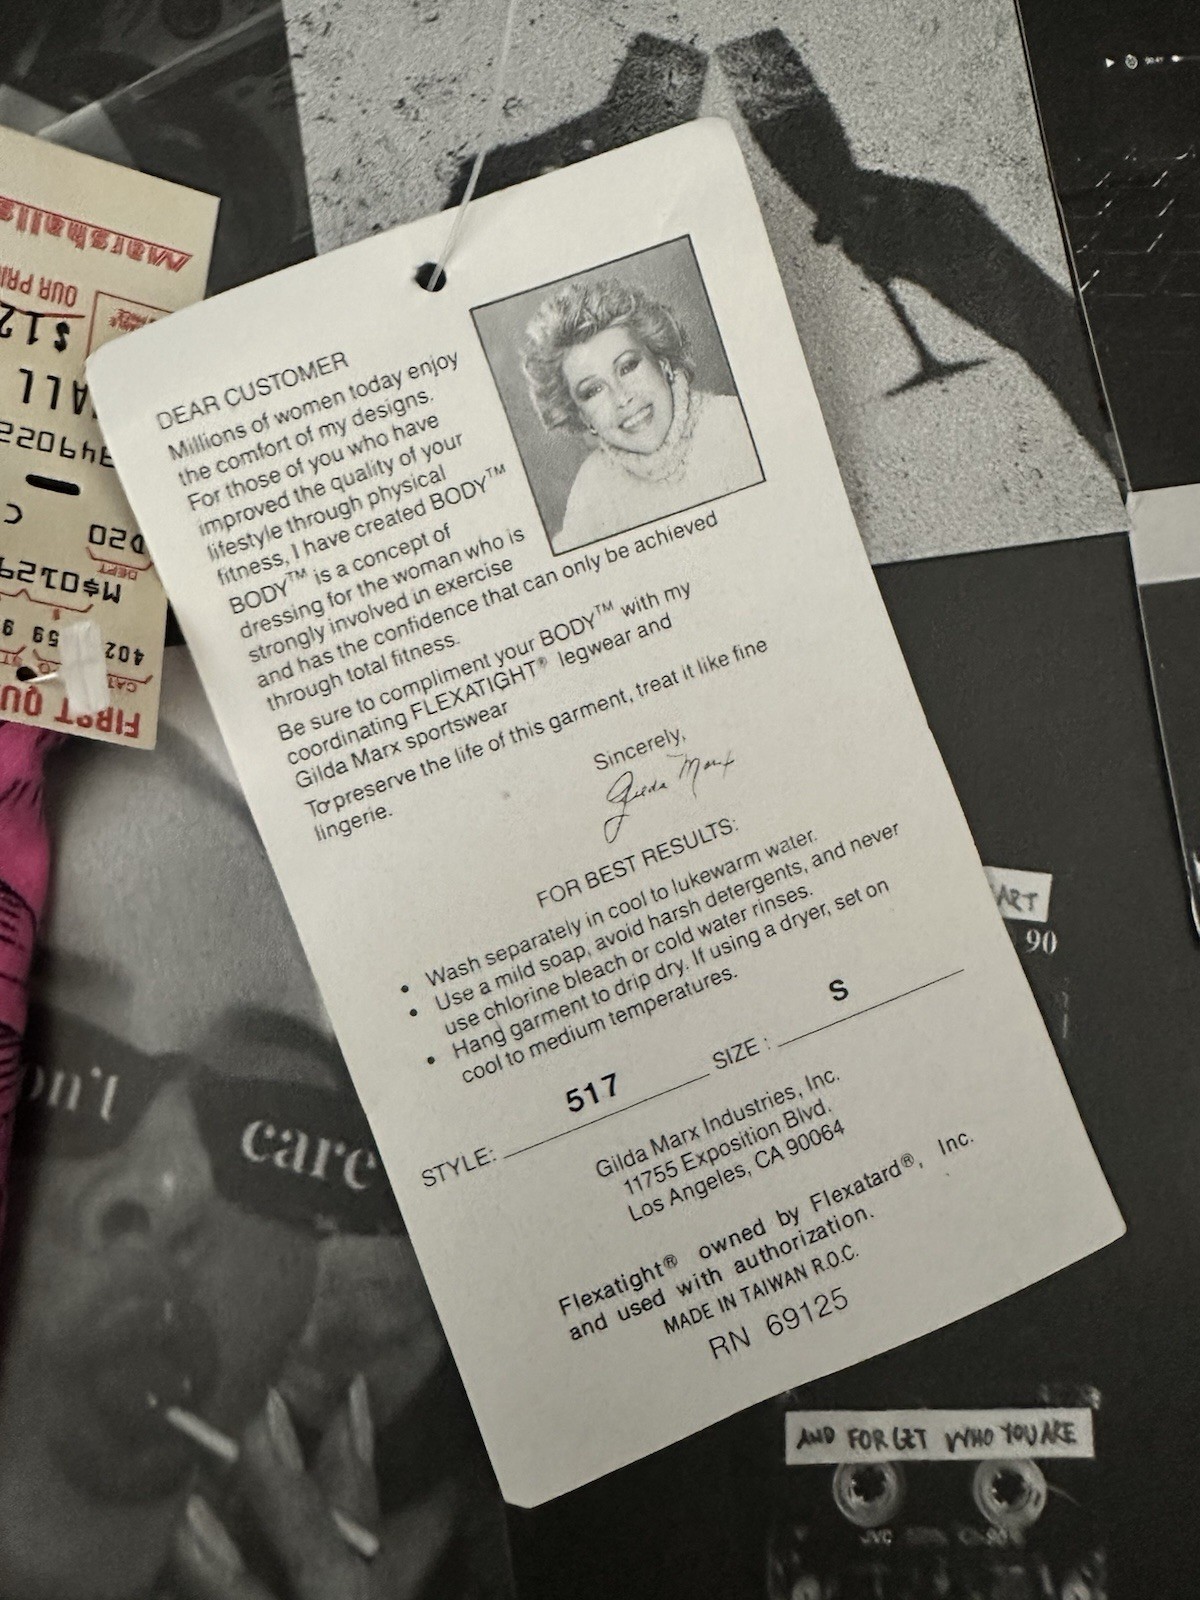 DEAR CUSTOMER
Millions of women today enjoy
the comfort of my designs.
For those of you who have
improved the quality of your
lifestyle through physical
fitness, I have created BODY™
BODY™ is a concept of
dressing for the woman who is
strongly involved in exercise
and has the confidence that can only be achieved
through total fitness.
Be sure to compliment your BODY™ with my
coordinating FLEXATIGHT® legwear and
Gilda Marx sportswear
To preserve the life of this garment, treat it like fine
lingerie.
Sincerely,
Gilda Marx
FOR BEST RESULTS:
• Wash separately in cool to lukewarm water.
• Use a mild soap, avoid harsh detergents, and never
use chlorine bleach or cold water rinses.
• Hang garment to drip dry. If using a dryer, set on
cool to medium temperatures.
STYLE: 517 SIZE: S
Gilda Marx Industries, Inc.
11755 Exposition Blvd.
Los Angeles, CA 90064
Flexatight® owned by Flexatard®, Inc.
and used with authorization.
MADE IN TAIWAN R.O.C.
RN 69125
Marshalls
OUR
$12
DEPT
FIRST
care
90
AND FORGET WHO YOU ARE
JVC